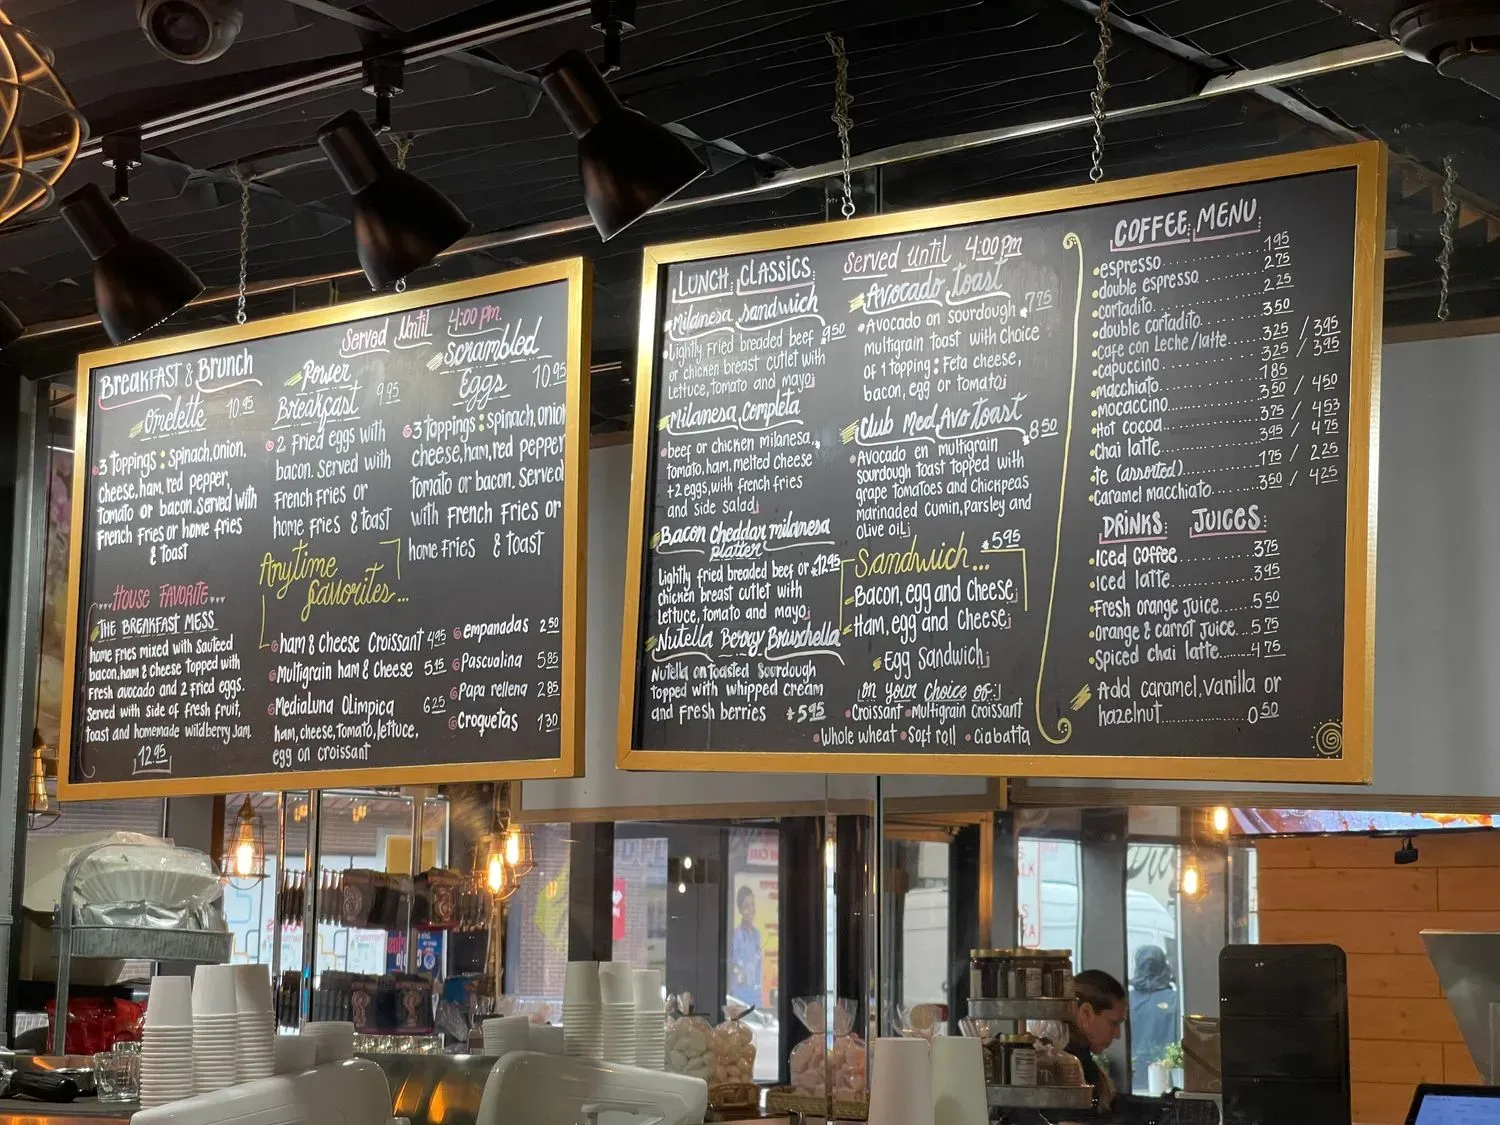 Served Until 4:00 pm.
BREAKFAST & Brunch
Omelette 10.95
3 toppings : spinach, onion,
cheese, ham, red pepper,
tomato or bacon. Served with
French Fries or home fries
& toast
...HOUSE FAVORITE...
THE BREAKFAST MESS
home fries mixed with Sauteed
bacon, ham & Cheese topped with
Fresh avocado and 2 Fried eggs.
Served with side of Fresh fruit,
toast and homemade wildberry Jam.
12.95
Power
Breakfast 9.95
2 Fried eggs with
bacon. Served with
French Fries or
home Fries & toast
Scrambled
Eggs 10.95
3 toppings : spinach, onion
cheese, ham, red pepper
tomato or bacon. Served
with French Fries or
home Fries & toast
Anytime
favorites...
ham & Cheese Croissant 4.95
Multigrain ham & Cheese 5.15
MediaLuna Olimpica 6.25
ham, cheese, tomato, lettuce,
egg on croissant
empanadas 2.50
Pascualina 5.85
Papa rellena 2.85
Croquetas 1.30
LUNCH CLASSICS
Milanesa Sandwich
Lightly Fried breaded beef 9.50
or chicken breast cutlet with
lettuce, tomato and mayo
Milanesa Completa
beef or chicken milanesa,
tomato, ham, melted cheese
+2 eggs, with french fries
and side salad
Bacon Cheddar milanesa
platter
lightly fried breaded beef or $12.95
chicken breast cutlet with
lettuce, tomato and mayo
Nutella Berry Bruschella
Nutella on toasted Sourdough
topped with whipped cream
and fresh berries $5.95
Served Until 4:00 pm
Avocado Toast
Avocado on sourdough $7.75
multigrain toast with choice
of 1 topping : Feta cheese,
bacon, egg or tomato
Club Med Avo Toast
$8.50
Avocado en multigrain
sourdough toast topped with
grape tomatoes and chickpeas
marinaded cumin, parsley and
olive oil
Sandwich... $5.95
Bacon, egg and Cheese
Ham, egg and Cheese
Egg Sandwich
on your choice of:
Croissant • Multigrain Croissant
Whole wheat • Soft roll • Ciabatta
COFFEE MENU
espresso 1.95
double espresso 2.75
cortadito 2.25
double cortadito 3.50
cafe con Leche/latte 3.25 / 3.95
capuccino 3.25 / 3.95
macchiato 1.85
mocaccino 3.50 / 4.50
Hot cocoa 3.75 / 4.53
Chai latte 3.95 / 4.75
te (assorted) 1.75 / 2.25
caramel macchiato 3.50 / 4.25
DRINKS JUICES
Iced coffee 3.75
Iced latte 3.95
Fresh orange Juice 5.50
Orange & carrot Juice 5.75
Spiced chai latte 4.75
Add caramel, Vanilla or
hazelnut 0.50